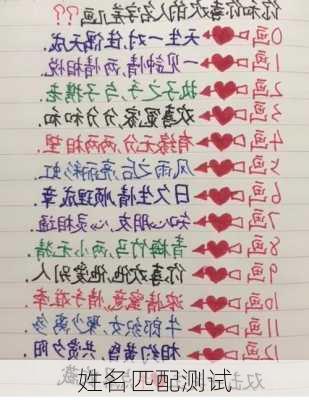 你和你喜欢的人名字差几画??
0画 天生一对,佳偶天成.
1画 一见钟情,两情相悦.
2画 执子之手,与子携老.
3画 欢喜冤家,分分和和.
4画 有缘无分,两两相望.
5画 风雨之后,亮丽彩虹.
6画 日久生情,顺理成章.
7画 知心朋友,心灵相通
8画 青梅竹马,两小无猜.
9画 你喜欢他,他爱别人
10画 浓情蜜意,
11画 牛郎织女,聚少离多
12画 相约黄昏,共赏夕阳
双击
姓名匹配测试